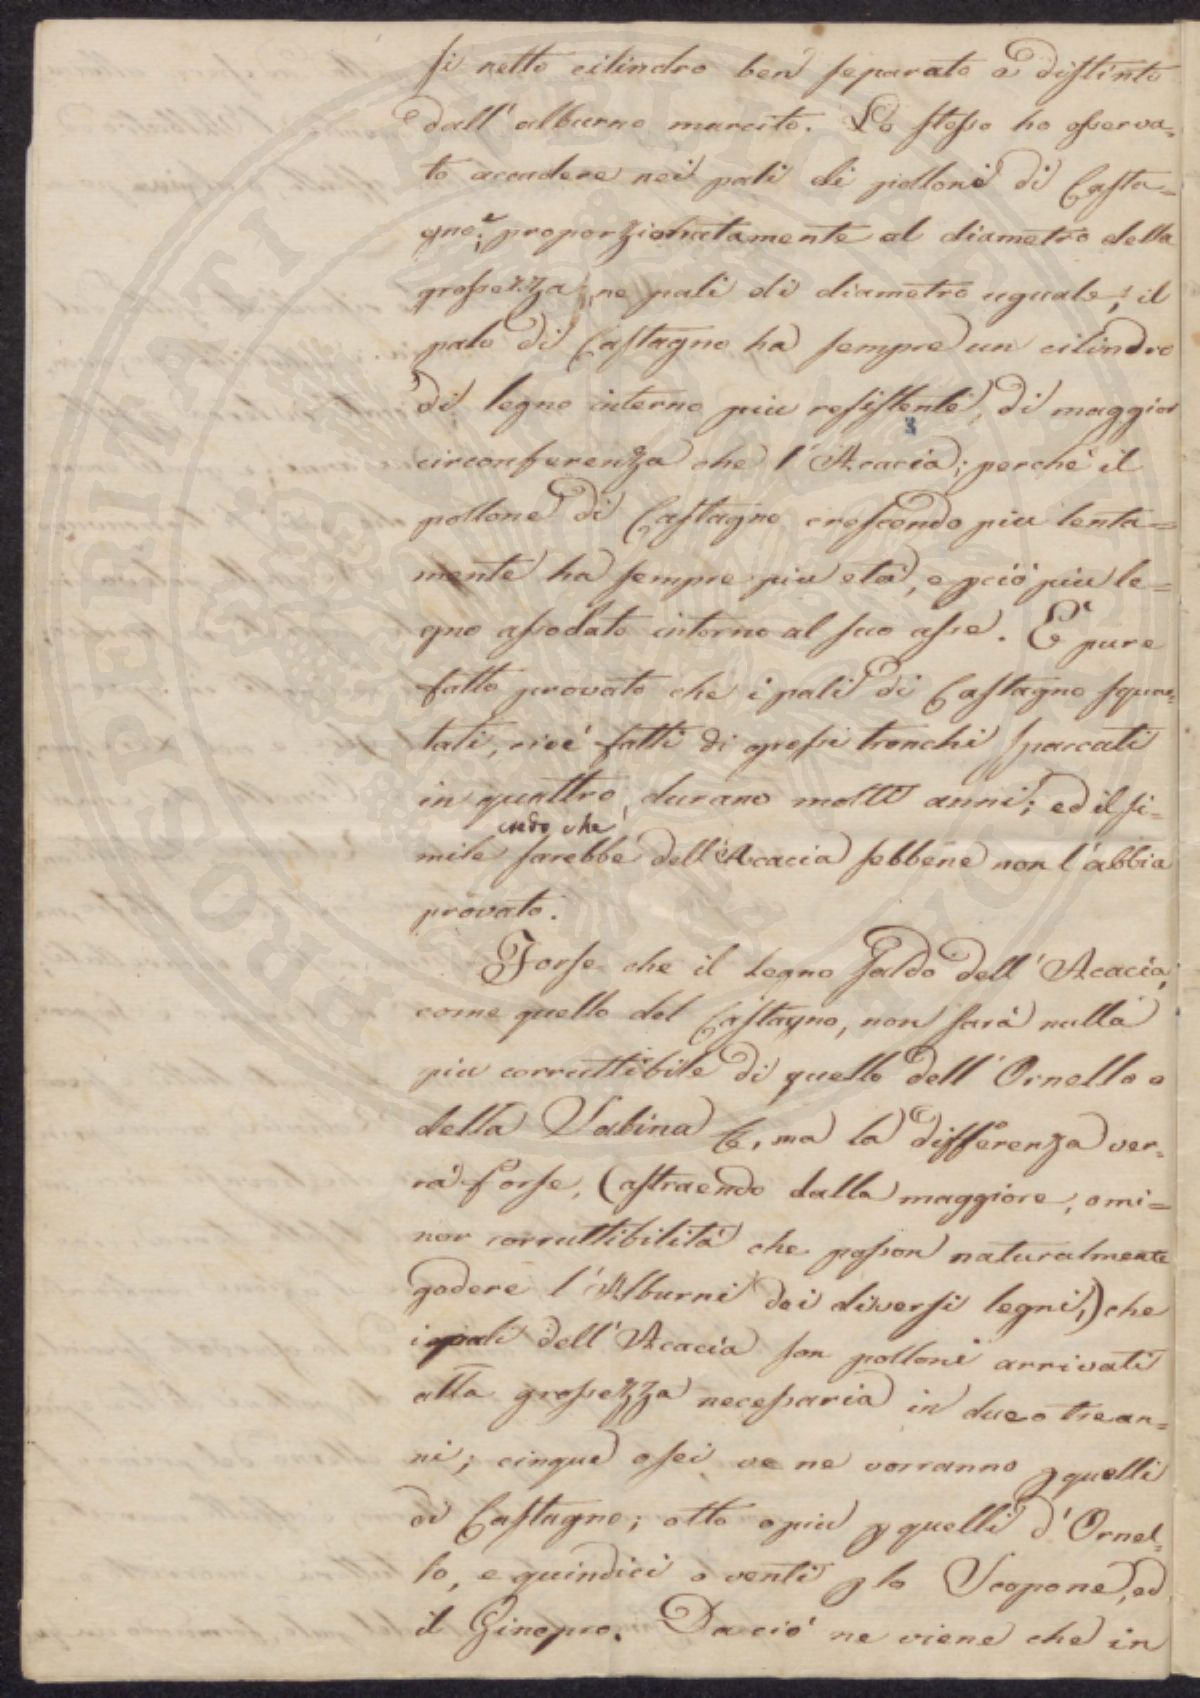 si netto cilindro ben separato e distinto
dall'alburno marcito. Lo stesso ho osserva=
to accadere nei pali di polloni di Casta=
gno; proporzionatamente al diametro della
grossezza; ne pali di diametro uguale, il
palo di Castagno ha sempre un cilindro
di legno interno piu resistente, di maggior
circonferenza che l'Acacia; perche il
pollone di Castagno crescendo piu lenta=
mente ha sempre piu età, e pciò piu le=
gno assodato intorno al suo asse. E pure
fatto provato che i pali di Castagno squar=
tati, cioè fatti di grossi tronchi spaccati
in quattro, durano molti anni; ed il si=
credo che
mile sarebbe dell'Acacia sebbene non l'abbia
provato.
Forse che il legno saldo dell'Acacia,
come quello del Castagno, non sarà nulla
piu corruttibile di quello dell'Ornello o
della Sabina &, ma la differenza ver=
rà forse, (astraendo dalla maggiore, o mi=
nor corruttibilità che posson naturalmente
godere l'Alburni dei diversi legni,) che
i pali dell'Acacia son polloni arrivati
alla grossezza necessaria in due o tre an=
ni; cinque o sei ve ne vorranno p quelli
di Castagno; otto o piu p quelli d'Ornel=
lo, e quindici o venti p lo Scopone, ed
il Ginepro. Da ciò ne viene che in
PROSPERITATI PUBLICAE